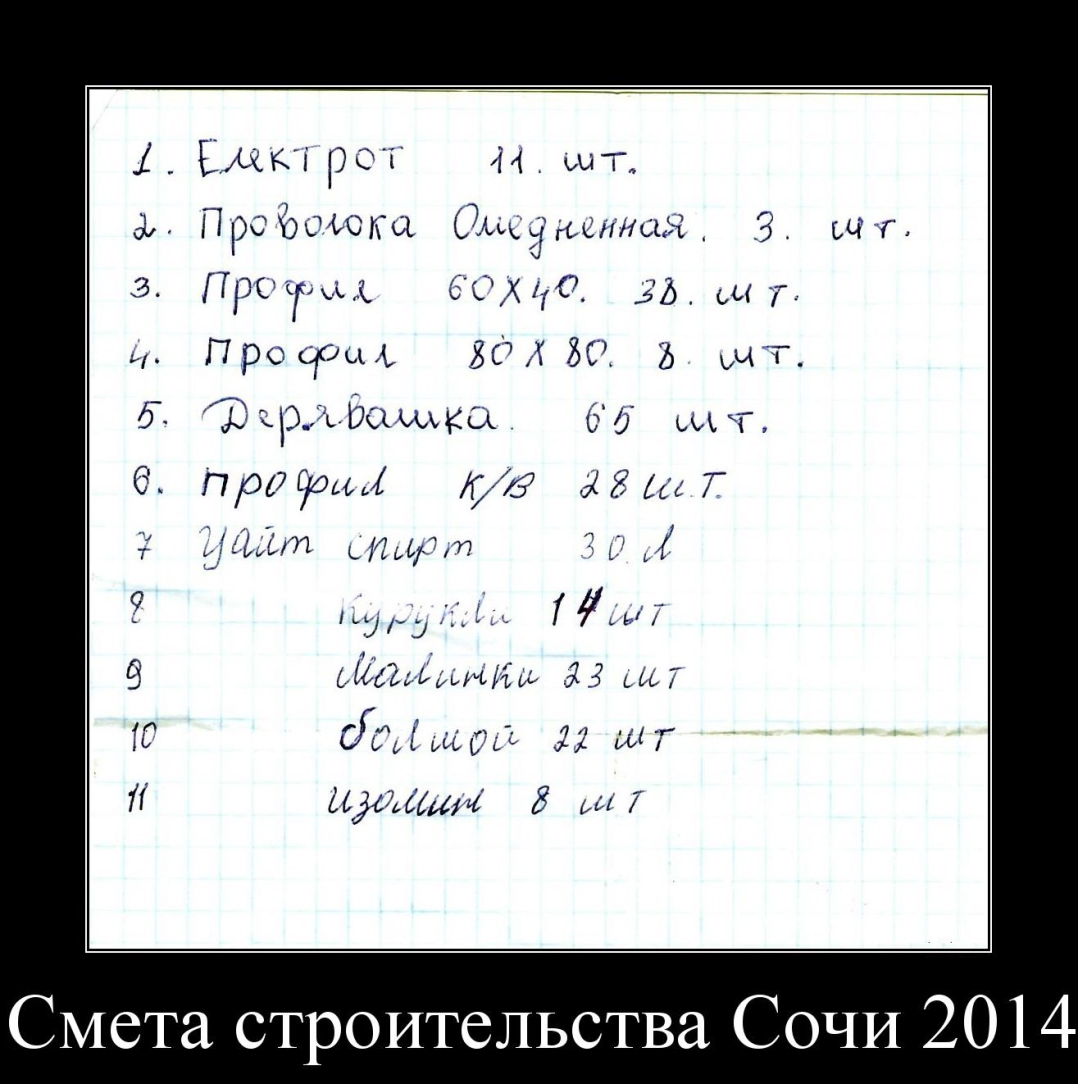 1. Електрот 11. шт.
2. Проволока Омедненная. 3. шт.
3. Профил 60Х40. 38. шт.
4. Профил 80Х80. 8. шт.
5. Дерявашка. 65 шт.
6. профил к/в 28 ш.т.
7 Уайт спирт 30 л
8 курукли 14 шт
9 малинки 23 шт
10 болшой 22 шт
11 изомин 8 шт
Смета строительства Сочи 2014